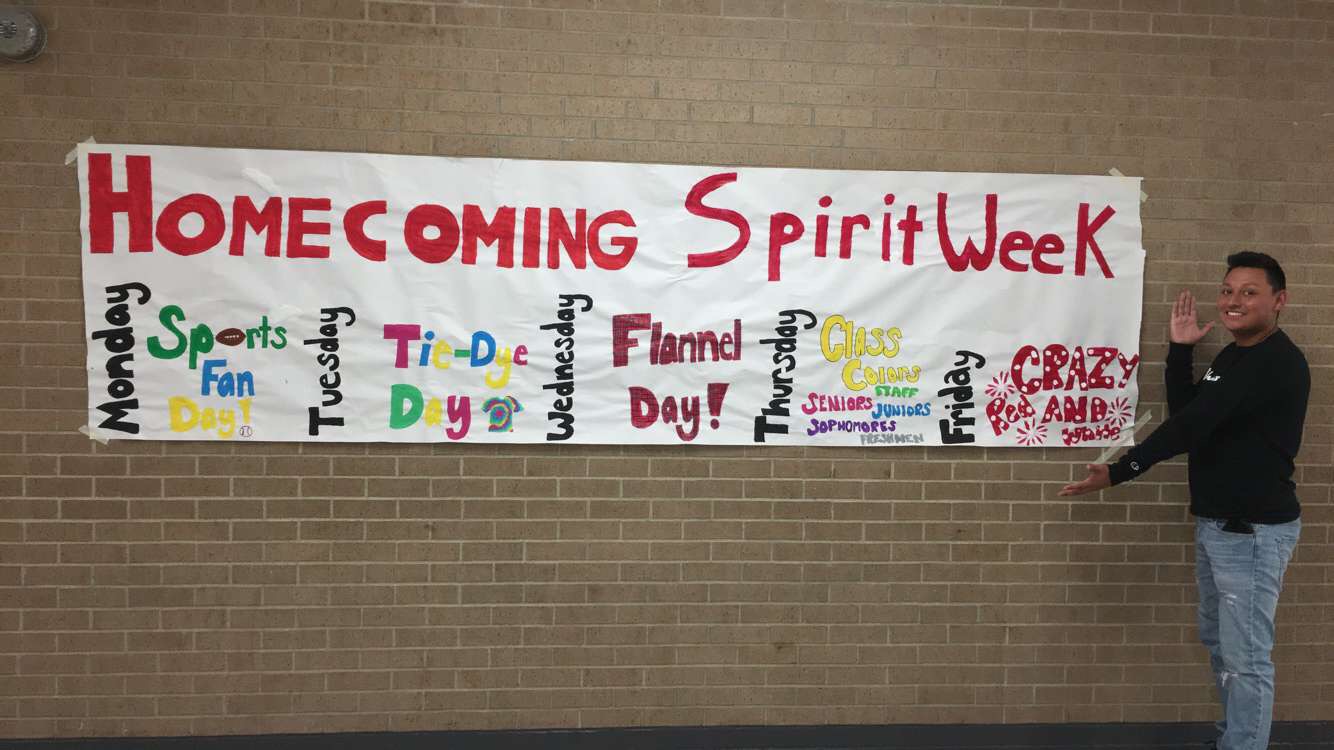 HOMECOMING Spirit Week
Monday
Sports
Fan
Day!
Tuesday
Tie-Dye
Day
Wednesday
Flannel
Day!
Thursday
Class
Colors
STAFF
SENIORS JUNIORS
SOPHOMORES
FRESHMEN
Friday
CRAZY
Red AND
White